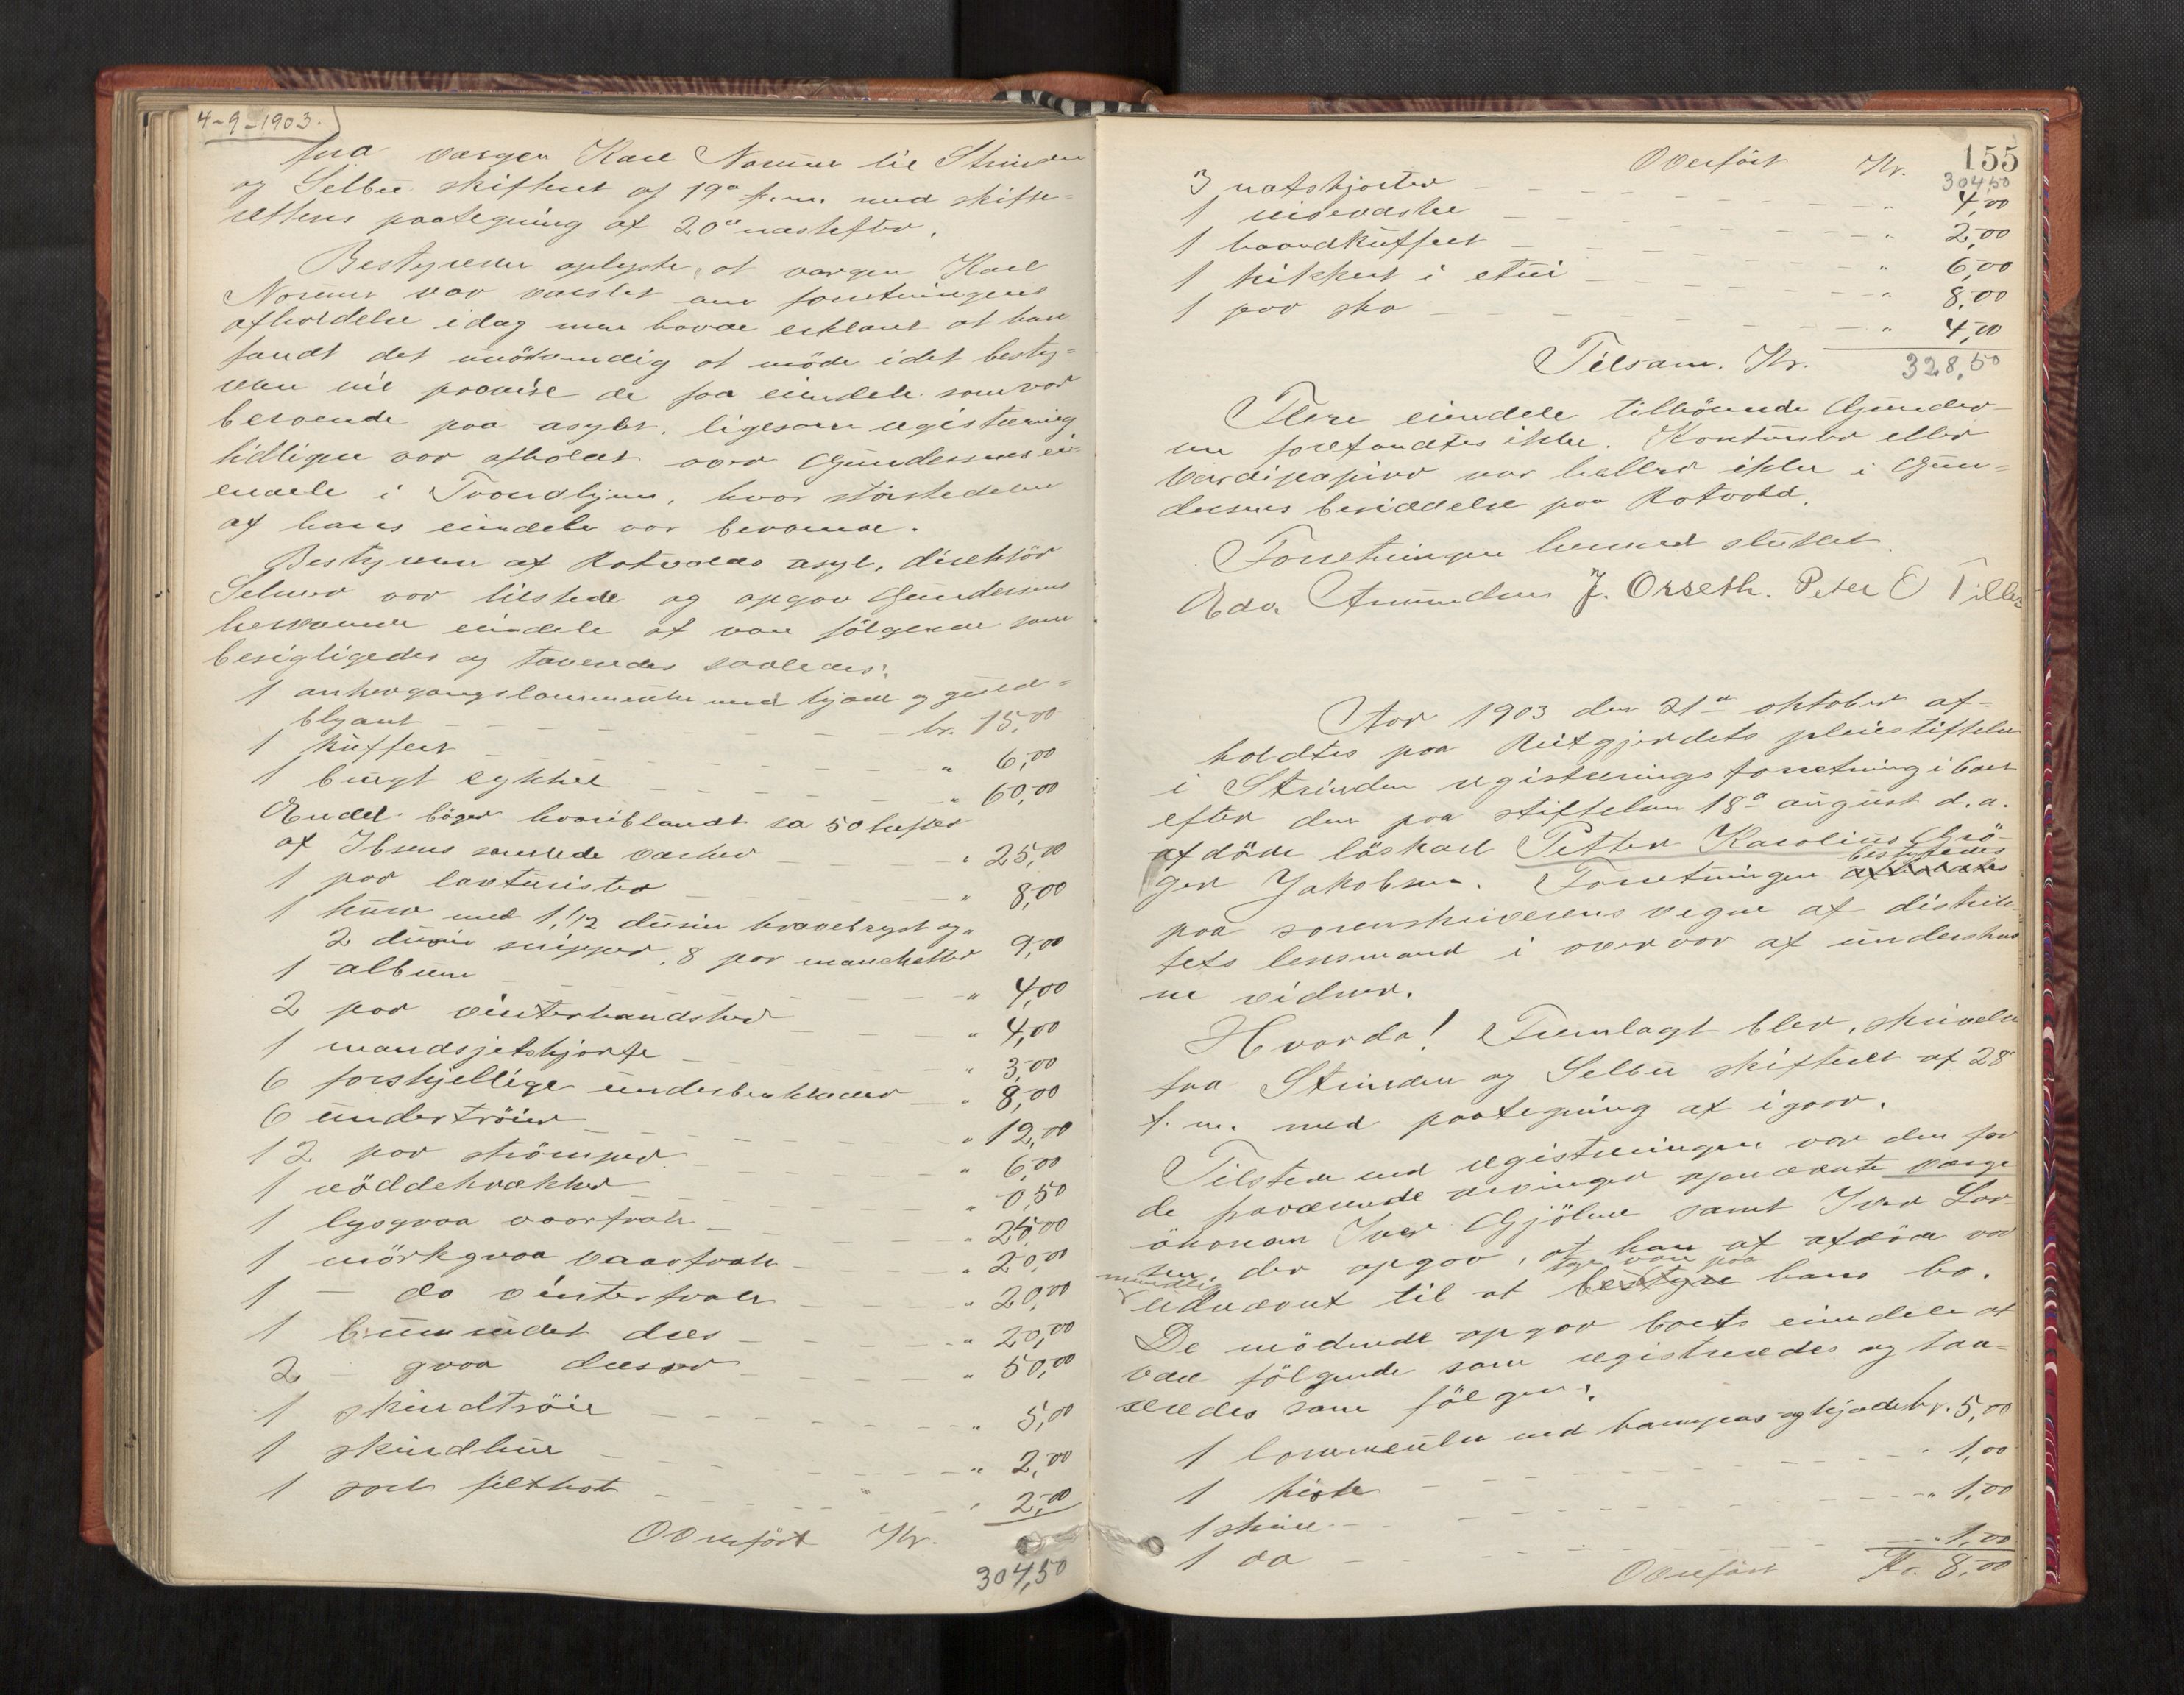 4-9-1903.
fra værgen Karl Normer til Strinden
og Selbu skifteret af 19de f.m. med skifte=
rettens paategning af 20de næstefter.
Bestyreren oplyste, at værgen Karl
Normer var varslet om forretningens
afholdelse idag men havde erklæret at han
fandt det unödvendig at möde idet besty=
reren vil paavise de faa eiendele som var
beroende paa asylet, ligesom registrering
tidligere var afholdt over Gundersens ei=
endele i Trondhjem, hvor störstedelen
af hans eiendele var beroende.
Bestyreren af Rotvolds asyl, direktör
Selmer var tilstede og opgav Gundersens
herværende eiendele at være fölgende som
besigtigedes og taxeredes saaledes:
1 ankergangslommeuhr med kjæde og guld=
blyant kr. 15,00
1 kuffert " 6,00
1 brugt cykkel " 60,00
Endel böger hvoriblandt ca 50 hefter
af Ibsens samlede værker " 25,00
1 par lakturister " 8,00
1 kurv med 1 1/12 dusin kravebryst og
2 dusin snipper, 8 par manchetter 9,00
1 album " 4,00
2 par vinterhandsker " 4,00
1 mandsjetskjorte " 3,00
6 forskjellige underbenklæder " 8,00
6 undertröier " 12,00
12 par strömper " 6,00
1 nöddeknækker " 0,50
1 lysgraa vaarfrak " 25,00
1 mörkgraa vaarfrak " 20,00
1 - do vinterfrak " 20,00
1 brunrudet dres " 20,00
2 - graa dresser " 50,00
1 skindtröie " 5,00
1 skindhue " 2,00
1 sort filthat " 2,00
Overfört Kr.
304,50
155
Overfört Kr. 304,50
3 natskjorter " 4,00
1 reisevæske " 2,00
1 haandkuffert " 6,00
1 kikkert i etui " 8,00
1 par sko " 4,00
Tilsam. Kr. 328,50
Flere eiendele tilhörende Gunder=
sen forefandtes ikke. Kontanter eller
værdipapirer var heller ikke i Gun=
dersens besiddelse paa Rotvold.
Forretningen hermed sluttet.
Edv. Amundsen J. Orseth. Peter O Tiller
Aar 1903 den 21de oktober af=
holdtes paa Reitgjerdets pleiestiftelse
i Strinden registreringsforretning i boet
efter den paa stiftelsen 18de august d.a.
afdöde löskarl Petter Karolius Grö=
ger Jakobsen. Forretningen bestyredes
paa sorenskriverens vegne af distrik=
tets lensmand i overvær af underskrev
ne vidner.
Hvorda! Fremlagt blev, skrivelse
fra Strinden og Selbu skifteret af 28
f.m. med paategning af igaar.
Tilstede ved registreringen var den for
de fraværende arvinger opnævnte værge
ökonom Iver Gjölme samt Iver Lar=
sen, der opgav, at han af afdöde var
mundtlig udnævnt til at tage vare paa hans bo.
De mödende opgav boets eiendele at
være fölgende som registreredes og tax=
eredes som fölger:
1 lommeuhr med kompas og kjæde kr. 5,00
1 kiste " 1,00
1 skrin " 1,00
1 do " 1,00
Overfört Kr. 8,00